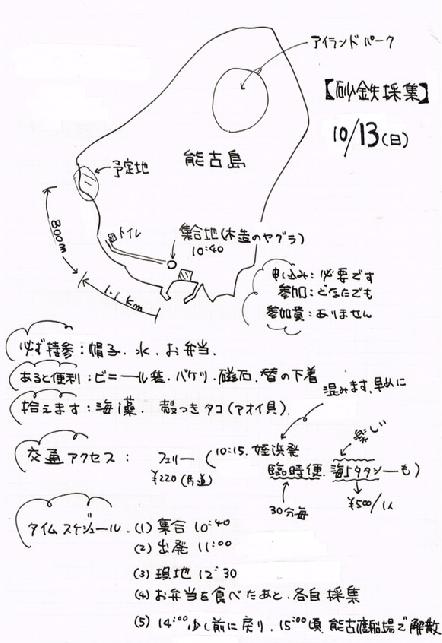 アイランドパーク
【砂鉄採集】
10/13(日)
能古島
予定地
トイレ
集合地(木造のヤグラ)
10:40
800m
1.1km
申し込み:必要です
参加:どなたでも
参加費:ありません
必ず持参:帽子、水、お弁当、
あると便利:ビニール袋、バケツ、磁石、替の下着
拾えます:海藻、殻つきタコ(アオイ貝)
混みます、早めに
交通アクセス: フェリー (10:15、姪浜発
¥220(片道)
臨時便、海上タクシーも)
30分毎
楽し
¥500/1人
タイムスケジュール、(1) 集合 10:40
(2) 出発 11:00
(3) 現地 12:30
(4) お弁当を食べたあと、各自採集
(5) 14:00少し前に戻り、15:00頃 能古渡船場で解散